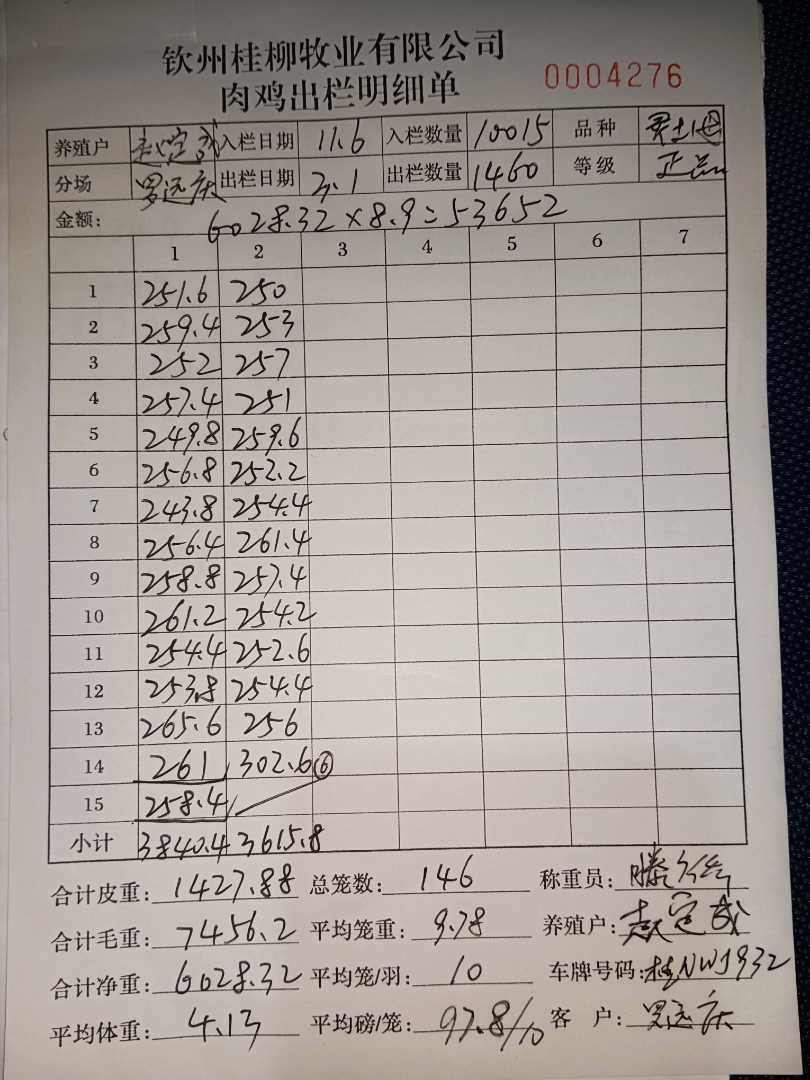 钦州桂柳牧业有限公司
肉鸡出栏明细单 0004276
养殖户 赵定成 入栏日期 11.6 入栏数量 10015 品种
分场 罗远庆 出栏日期 3.1 出栏数量 1460 等级 正品
金额: 6028.32×8.9=53652
1 2 3 4 5 6 7
1 251.6 250
2 259.4 253
3 252 257
4 257.4 251
5 249.8 259.6
6 256.8 252.2
7 243.8 254.4
8 256.4 261.4
9 258.8 257.4
10 261.2 254.2
11 254.4 252.6
12 253.8 254.4
13 265.6 256
14 261 302.6 ⑥
15 258.4
小计 3840.4 3615.8
合计皮重: 1427.88 总笼数: 146 称重员:
合计毛重: 7456.2 平均笼重: 9.78 养殖户: 赵定成
合计净重: 6028.32 平均笼/羽: 10 车牌号码: 桂NWJ932
平均体重: 4.13 平均磅/笼: 97.8/10 客 户: 罗远庆